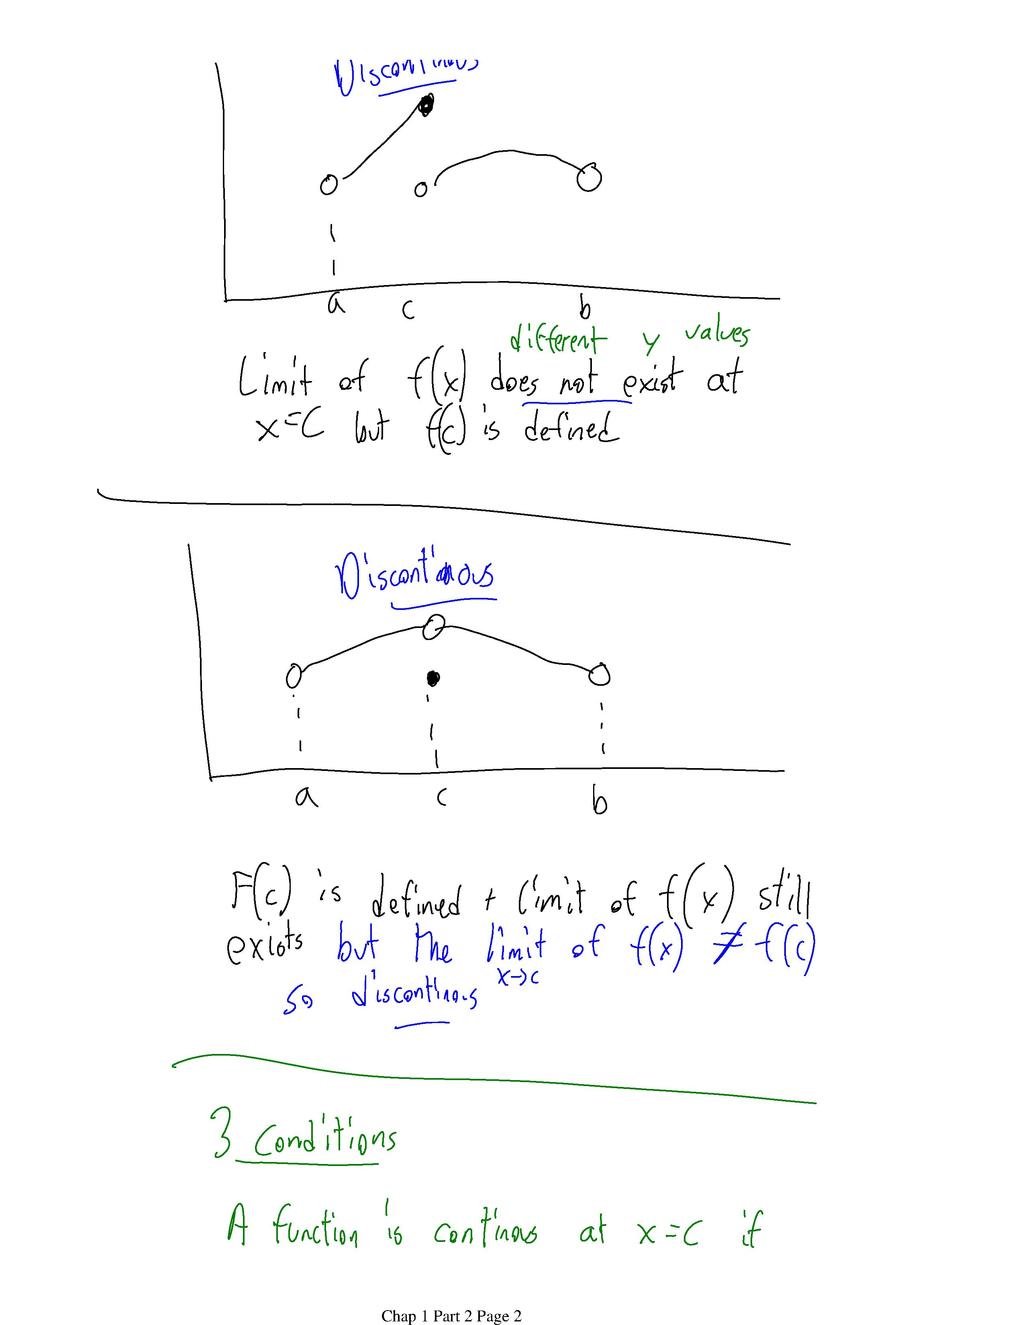 Discontinous
a c b
different y values
Limit of f(x) does not exist at
x=c but f(c) is defined
Discontinous
a c b
F(c) is defined + limit of f(x) still
exists but the limit of f(x) ≠ f(c)
x→c
so discontinous
3 Conditions
A function is continous at x=c if
Chap 1 Part 2 Page 2